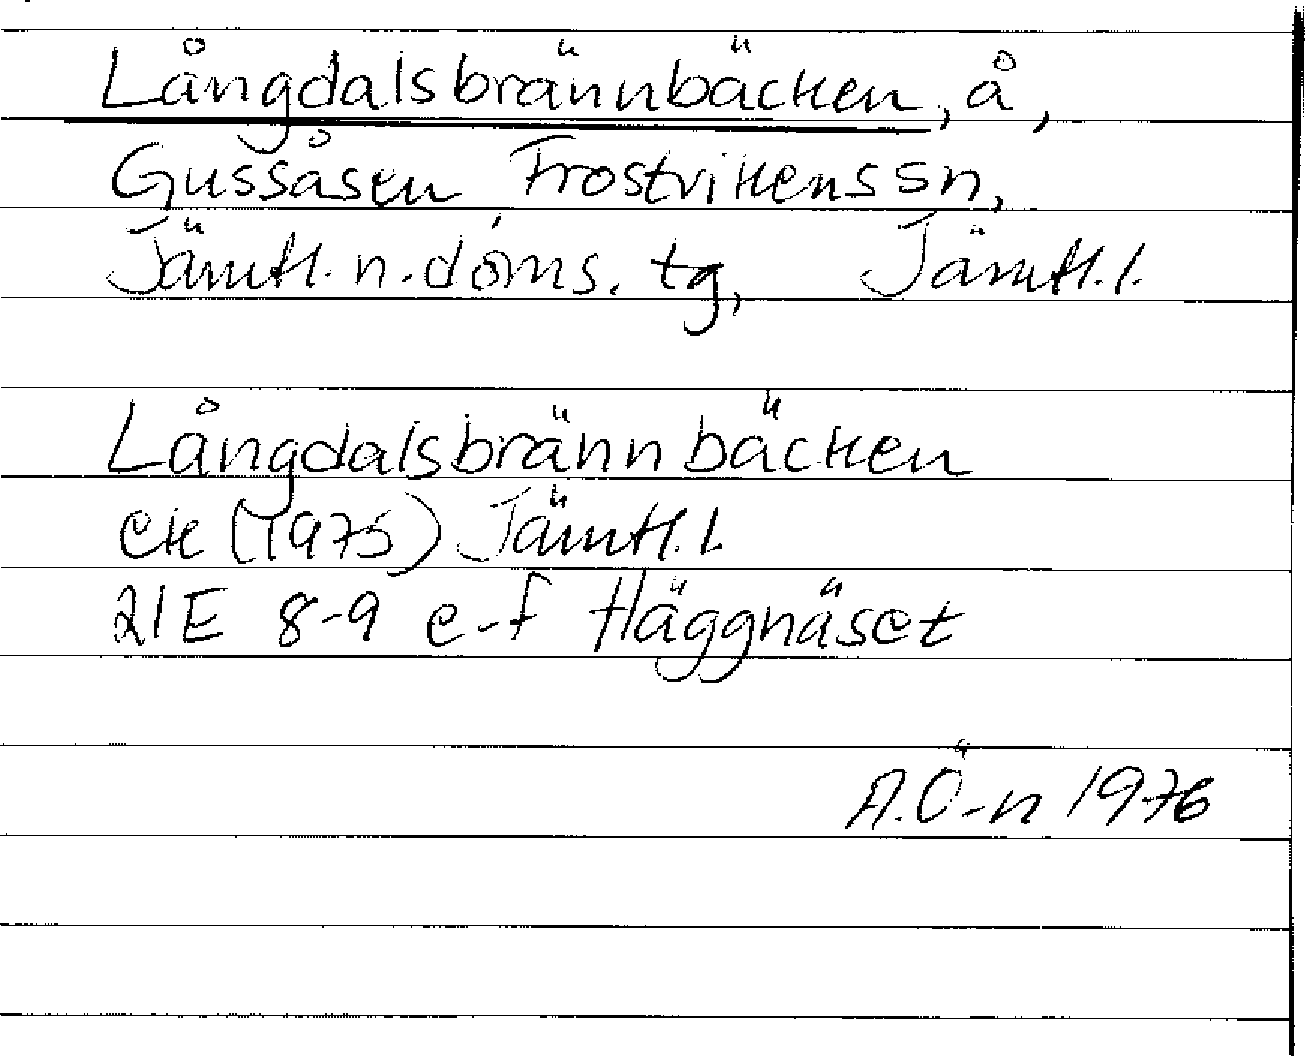 Långdalsbrännbäcken, å,
Gussåsen Frostvikens sn,
Jämtl. n. doms. tg, Jämtl. l.
Långdalsbrännbäcken
ek (1975) Jämtl. l.
21E 8-9 e-f Häggnäset
A.Ö-n 1976